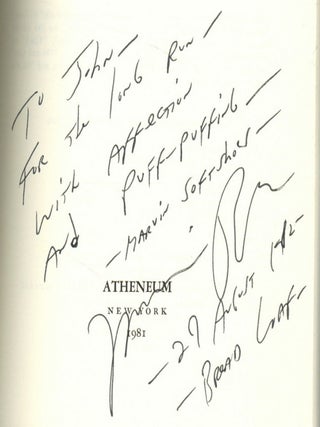 To John—
For the long Run—
With Affection
And Puff-Puffing—
—Marvin Softshoe—
ATHENEUM
NEW YORK
1981
—27 August 1982—
—Bread Loaf—